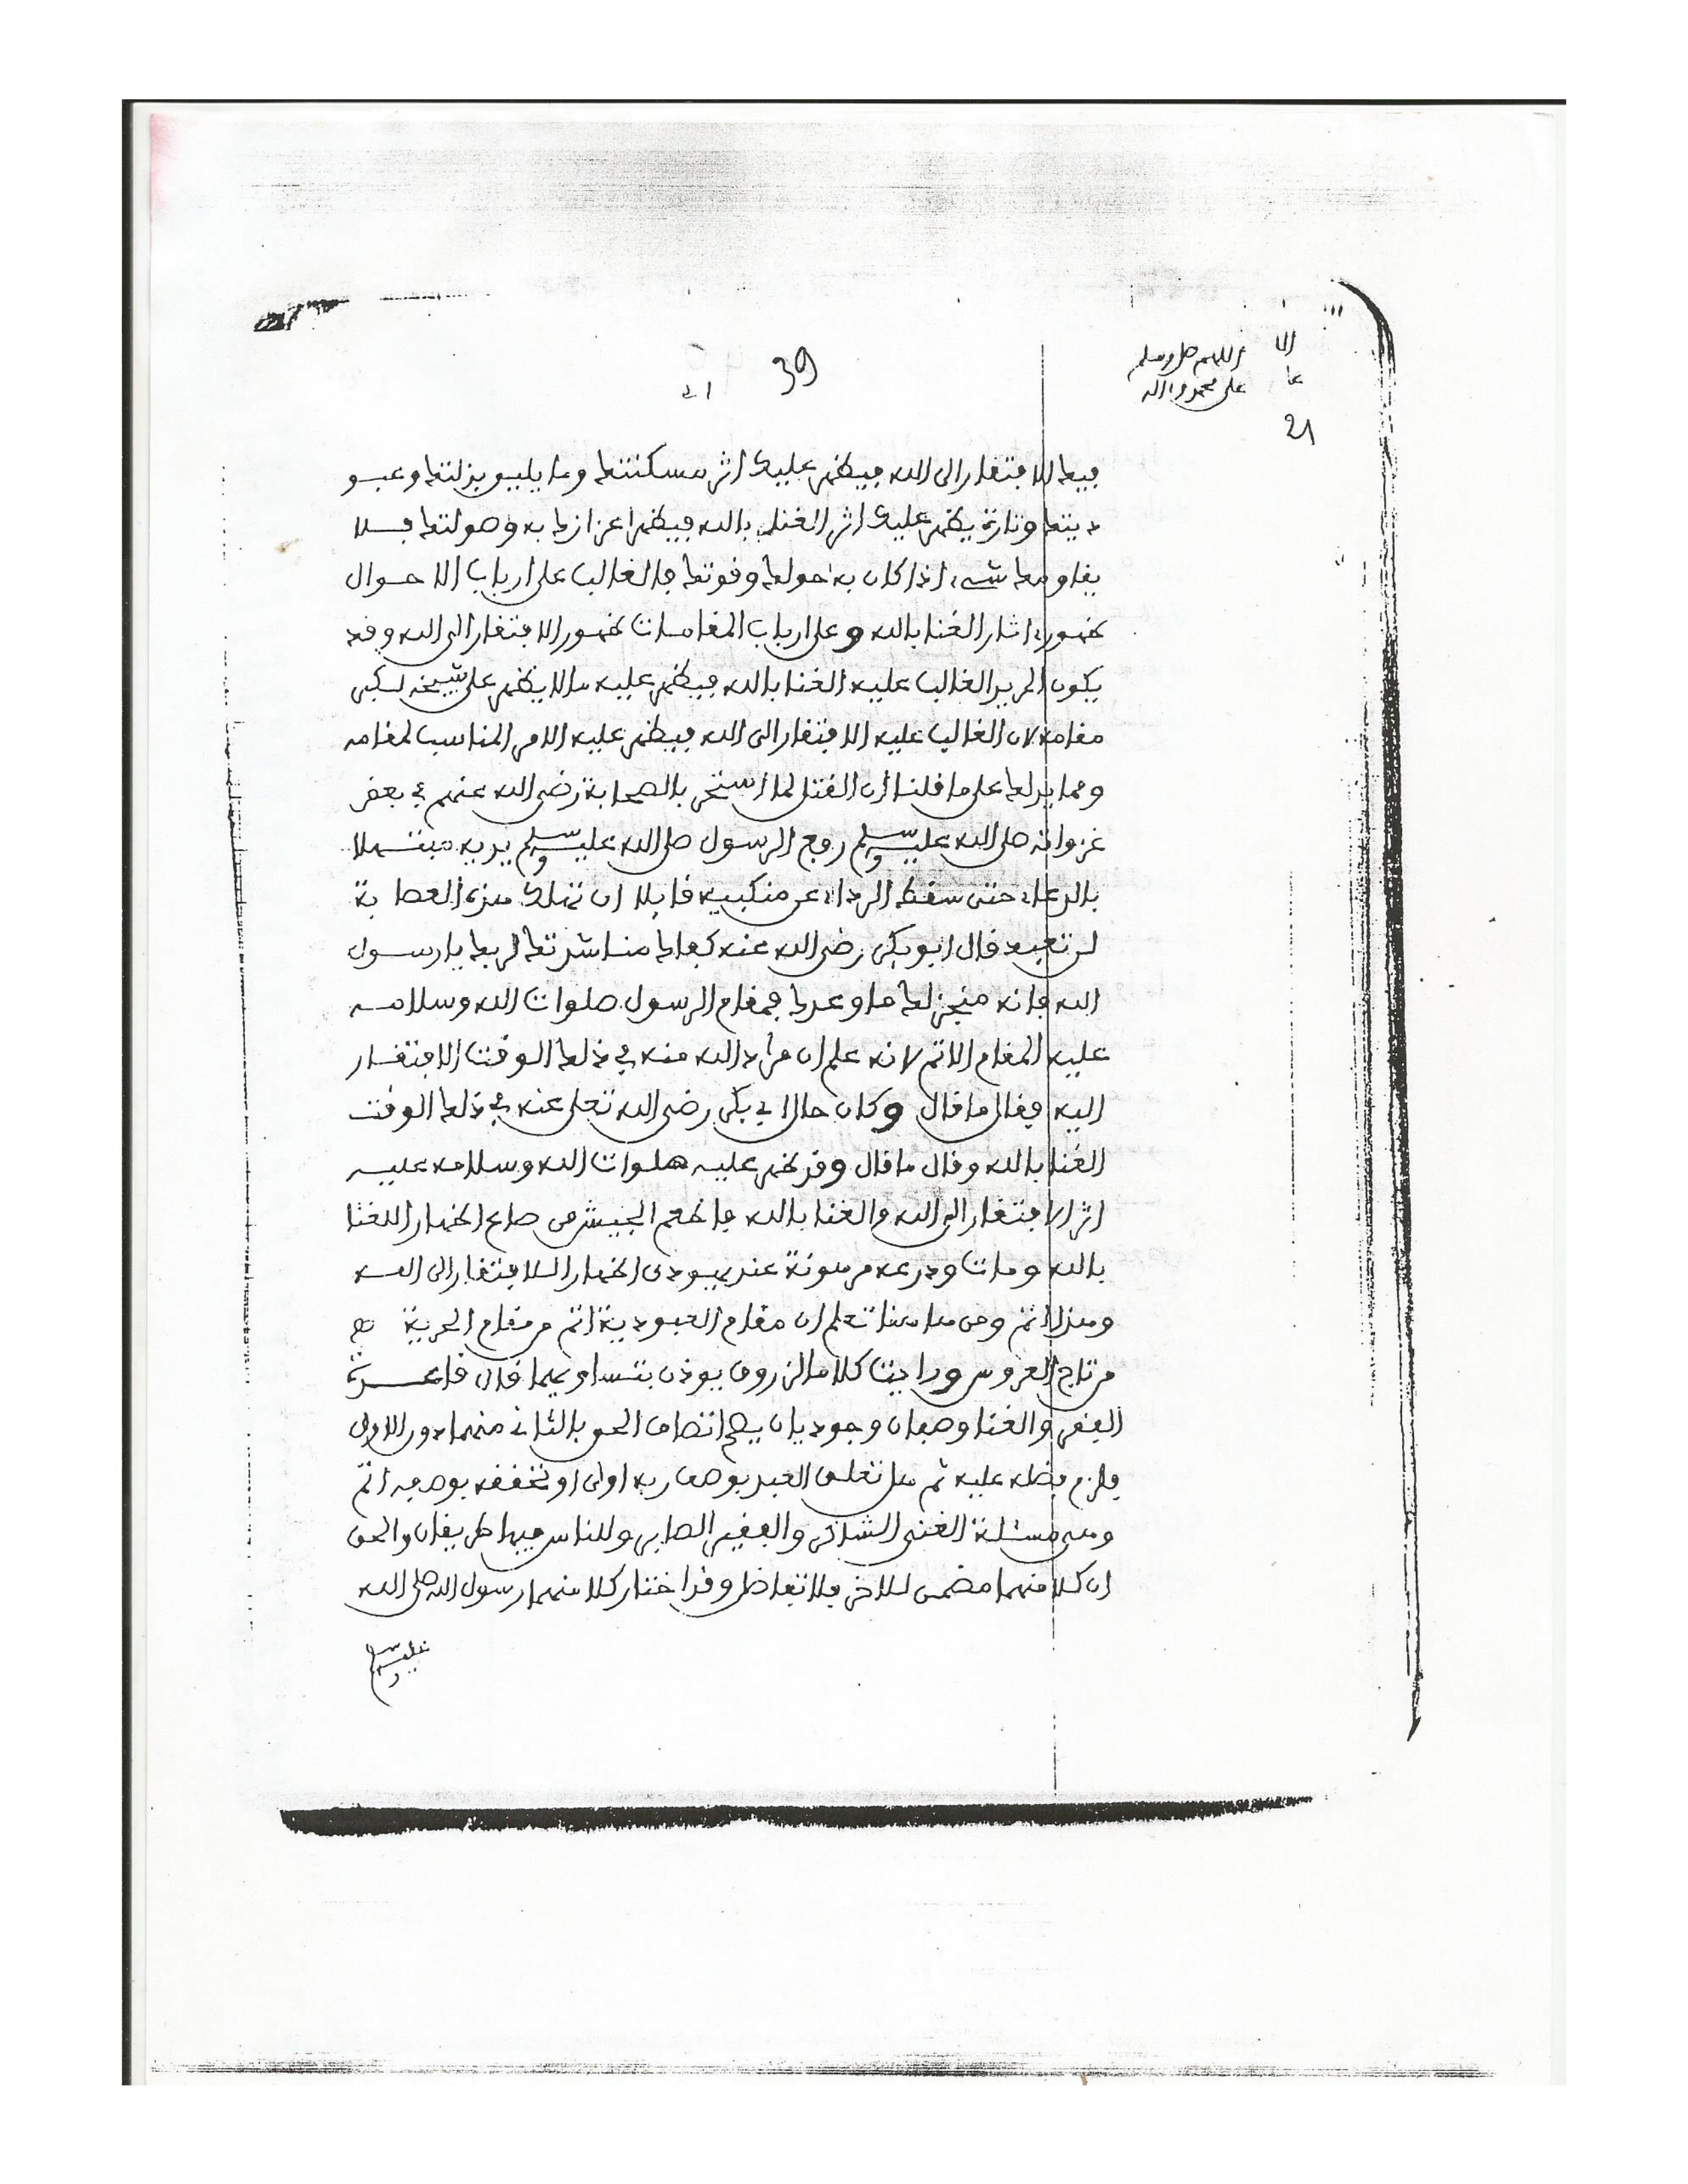 39
اللهم صل وسلم
على محمد وءاله
21
فيها الافتقار إلى الله فيظهر عليك اثر مسكنتها وما يليق بذلتها وعبو
ديتها وتارة يظهر عليك اثر الغنا بالله فيظهر اعزازها به وصولتها فلا
يقاومها شيء اذا كان به حولها وقوتها فالغالب على ارباب الاحوال
ظهور ءاثار الغنا بالله وعلى ارباب المقامات ظهور الافتقار الى الله وقد
يكون المريد الغالب عليه الغنا بالله فيظهر عليه ما لا يظهر على شيخه لكبر
مقامه لان الغالب عليه الافتقار الى الله فيظهر عليه الامر المناسب لمقامه
ومما يدلك على ما قلنا ان القتل لما استحر بالصحابة رضي الله عنهم في بعض
غزواته صلى الله عليه وسلم رفع الرسول صلى الله عليه وسلم يديه مبتهلا
بالدعاء حتى سقط الرداء عن منكبيه قايلا ان تهلك هذه العصابة
لن تعبد قال ابو بكر رضي الله عنه كفاك مناشدتك ربك يا رسول
الله فانه منجز لك ما وعدك فمقام الرسول صلوات الله وسلامه
عليه المقام الاتم لانه علم ان مراد الله منه في ذلك الوقت الافتقار
اليه فقال ما قال وكان حال ابي بكر رضي الله تعلى عنه في ذلك الوقت
الغنا بالله وقال ما قال وقد ظهر عليه صلوات الله وسلامه عليه
اثر الافتقار الى الله والغنا بالله فاطعم الجيش من صاع اظهارا للغنا
بالله ومات ودرعه مرهونة عند يهودي اظهارا للافتقار الى الله
وهذا اتم ومن هاهنا تعلم ان مقام العبودية اتم من مقام الحرية
من تاج العروس ورايت كلاما لزروق يوذن بتساويهما قال قاعدة
الفقر والغنا وصفان وجوديان يصح اتصاف الحق بالثاني منهما دون الاول
فلزم فضله عليه ثم هل تعلق العبد بوصف ربه اولى او تحققه بوصفه اتم
وهي مسئلة الغني الشاكر والفقير الصابر وللناس فيها طريقان والحق
ان كلا منهما مضمن للاخر فلا تفاضل وقد اختار كلا منهما رسول الله صلى الله
عليه وسلم